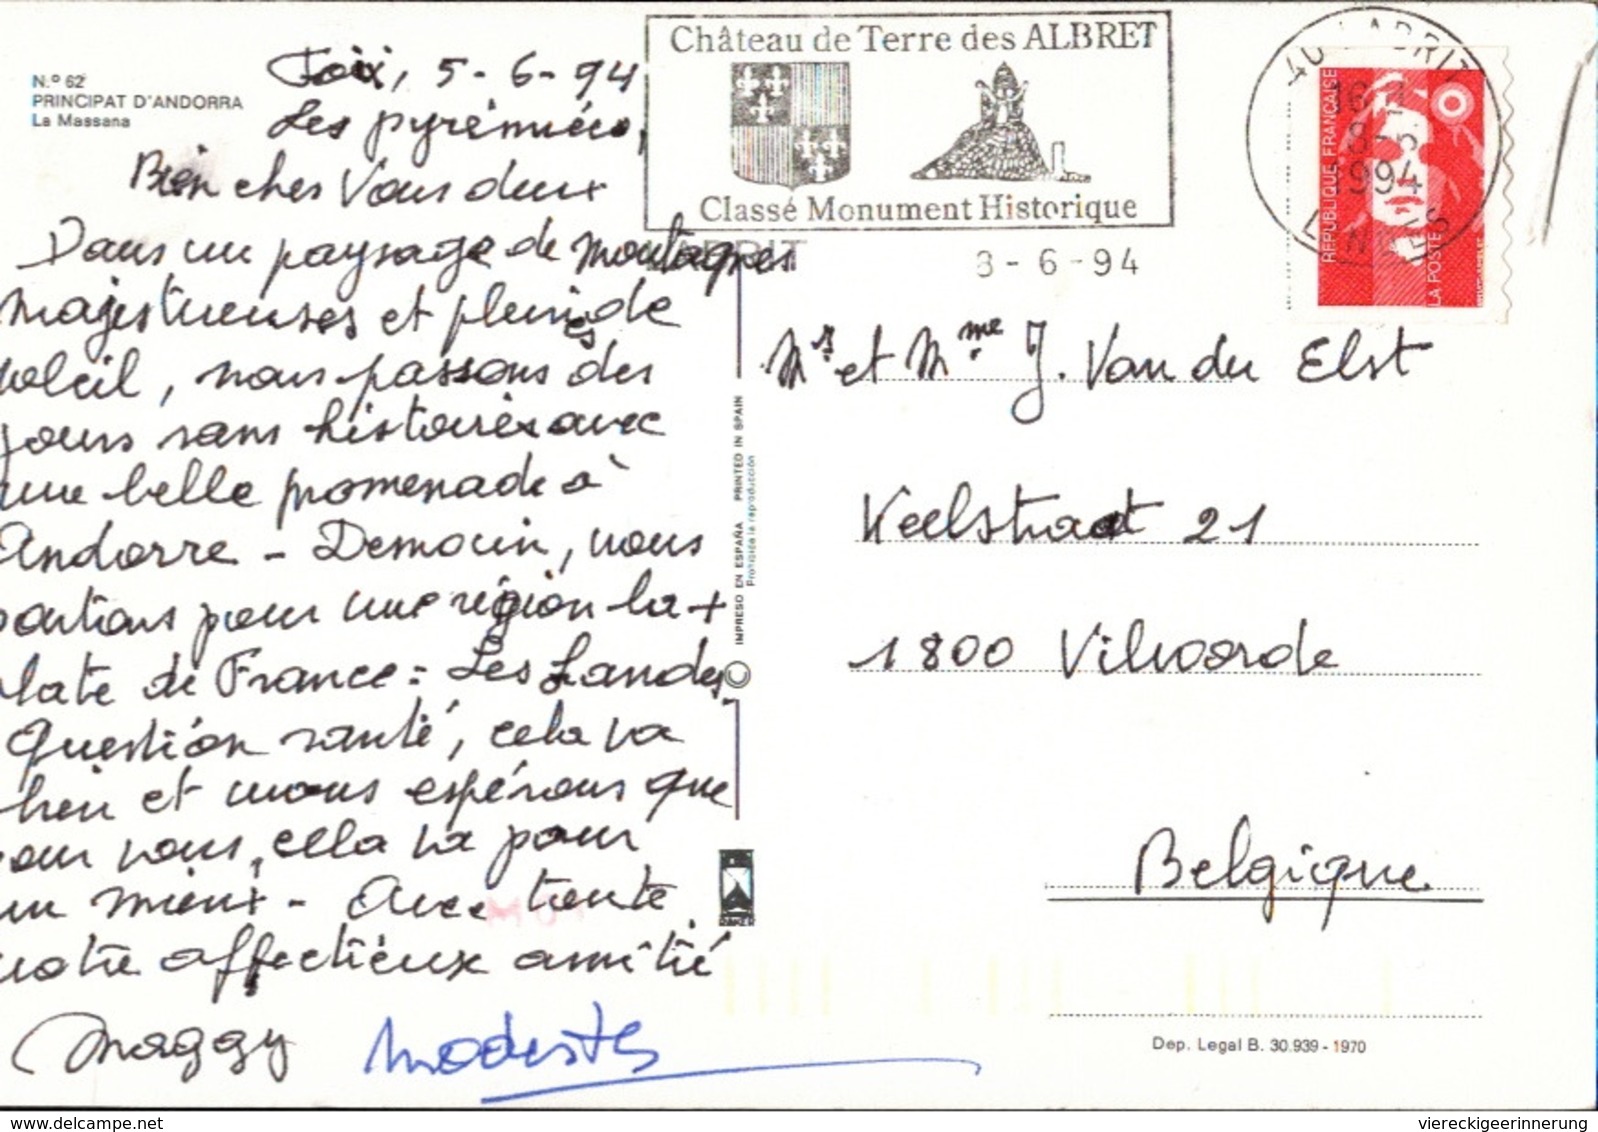 N.º 62
PRINCIPAT D'ANDORRA
La Massana
Foix, 5-6-94
Les pyrénnées,
Bien chers Vous deux
Dans un paysage de montagnes
majestueuses et pleines de
soleil, nous passons des
jours sans histoires avec
une belle promenade à
Andorre - Demain, nous
partions pour une région la +
plate de France = Les Landes.
Question santé, cela va
bien et nous espérons que
pour vous, cela va pour
un mieux - Avec toute
notre affectieux amitié
Maggy Modeste
Château de Terre des ALBRET
Classé Monument Historique
LABRIT
8-6-94
40 LABRIT
16 H
8-6
1994
LANDES
REPUBLIQUE FRANÇAISE
LA POSTE
Mr et Mme J. Van der Elst
Keelstraat 21
1800 Vilvoorde
Belgique
IMPRESO EN ESPAÑA PRINTED IN SPAIN
Prohibida la reproducción
Dep. Legal B. 30.939 - 1970
www.delcampe.net
viereckigeerinnerung